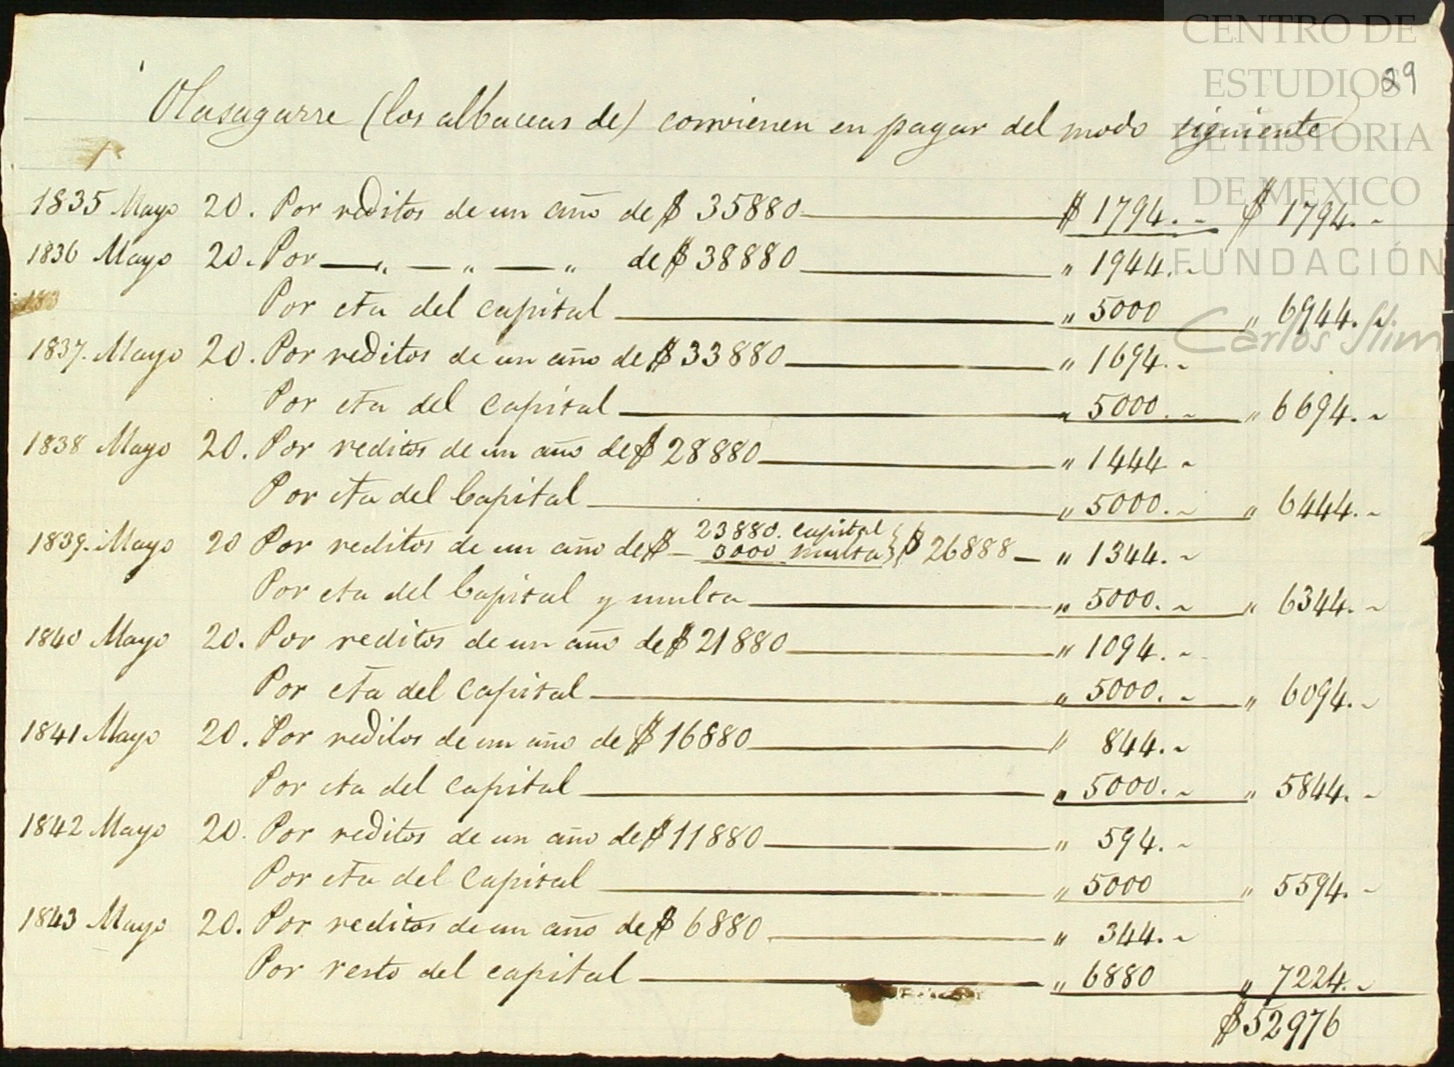 CENTRO DE
ESTUDIOS
DE HISTORIA
DE MEXICO
FUNDACIÓN
Carlos Slim
29
Olasagarre (los albaceas de) convienen en pagar del modo siguiente
1835 Mayo 20. Por reditos de un año de $ 35880 $ 1794. $ 1794.
1836 Mayo 20. Por — „ — „ — „ de $ 38880 „ 1944.
183 Por cta del capital „ 5000 „ 6944.
1837. Mayo 20. Por reditos de un año de $ 33880 „ 1694.
Por cta del capital „ 5000. „ 6694.
1838 Mayo 20. Por reditos de un año de $ 28880 „ 1444
Por cta del Capital „ 5000. „ 6444.
1839. Mayo 20 Por reditos de un año de $ 23880. capital
3000 multa } $ 26888 „ 1344.
Por cta del Capital y multa „ 5000. „ 6344.
1840 Mayo 20. Por reditos de un año de $ 21880 „ 1094.
Por cta del capital „ 5000. „ 6094.
1841 Mayo 20. Por reditos de un año de $ 16880 „ 844.
Por cta del capital „ 5000. „ 5844.
1842 Mayo 20. Por reditos de un año de $ 11880 „ 594.
Por cta del Capital „ 5000 „ 5594.
1843 Mayo 20. Por reditos de un año de $ 6880 „ 344.
Por resto del capital „ 6880 „ 7224.
$ 52976